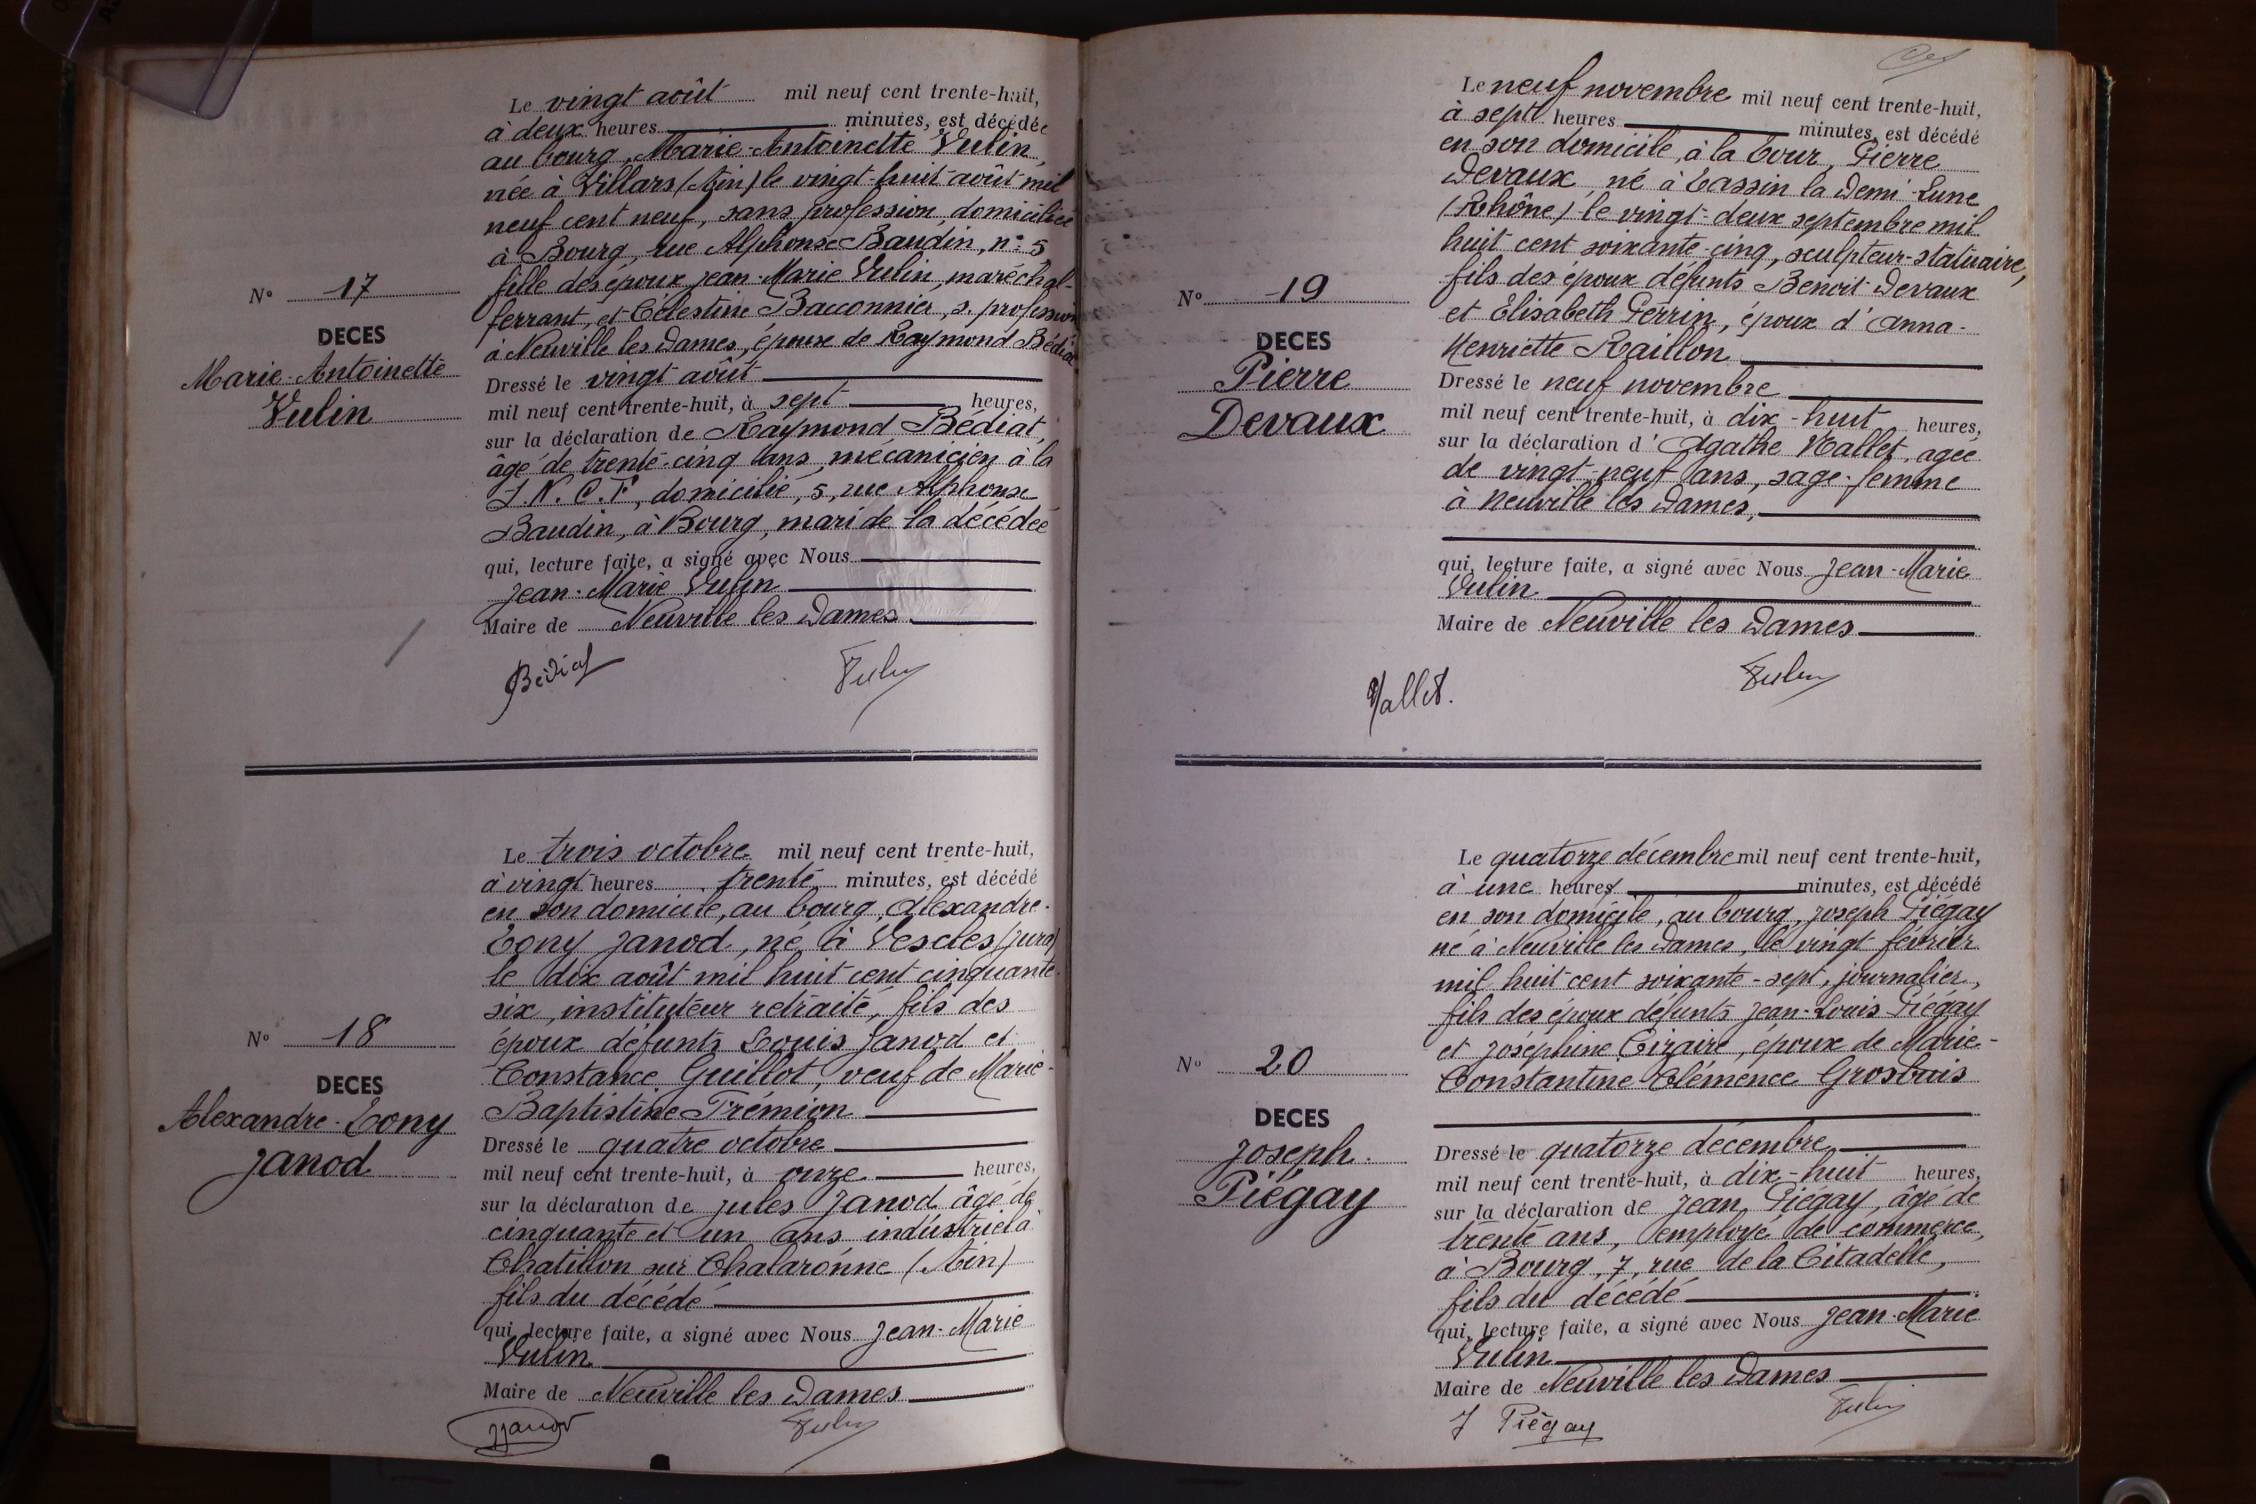 Le vingt août mil neuf cent trente-huit,
à deux heures minutes, est décédée
au bourg, Marie-Antoinette Vulin,
née à Villars (Ain) le vingt-huit août mil
neuf cent neuf, sans profession, domiciliée
à Bourg, rue Alphonse Baudin, n° 5,
fille des époux Jean-Marie Vulin, maréchal-
ferrant, et Célestine Bacconnier, s. profession
à Neuville les Dames, épouse de Raymond Bédiat
Dressé le vingt août
mil neuf cent trente-huit, à sept heures,
sur la déclaration de Raymond Bédiat,
âgé de trente-cinq ans, mécanicien à la
S.N.C.F, domicilié, 5, rue Alphonse
Baudin, à Bourg, mari de la décédée
qui, lecture faite, a signé avec Nous
Jean-Marie Vulin
Maire de Neuville les Dames
Bédiat Vulin
N° 17
DECES
Marie-Antoinette
Vulin
Le trois octobre mil neuf cent trente-huit,
à vingt heures trente minutes, est décédé
en son domicile, au bourg, Alexandre-
Tony Janod, né à Vescles (Jura)
le dix août mil huit cent cinquante-
six, instituteur retraité, fils des
époux défunts Louis Janod et
Constance Guillot, veuf de Marie-
Baptistine Trémion
Dressé le quatre octobre
mil neuf cent trente-huit, à onze heures,
sur la déclaration de Jules Janod âgé de
cinquante et un ans industriel à
Chatillon sur Chalaronne (Ain)
fils du décédé
qui, lecture faite, a signé avec Nous Jean-Marie
Vulin
Maire de Neuville les Dames
JJanod Vulin
N° 18
DECES
Alexandre-Tony
Janod
Le neuf novembre mil neuf cent trente-huit,
à sept heures minutes, est décédé
en son domicile, à la Cour, Pierre
Devaux né à Tassin la Demi-Lune
(Rhône) le vingt-deux septembre mil
huit cent soixante-cinq, sculpteur-statuaire,
fils des époux défunts Benoit Devaux
et Elisabeth Perrin, époux d'Anna-
Henriette Raillon
Dressé le neuf novembre
mil neuf cent trente-huit, à dix-huit heures,
sur la déclaration d'Agathe Mallet, agée
de vingt-neuf ans, sage-femme
à Neuville les Dames,
qui, lecture faite, a signé avec Nous Jean-Marie
Vulin
Maire de Neuville les Dames
Mallet. Vulin
N° 19
DECES
Pierre
Devaux
Le quatorze décembre mil neuf cent trente-huit,
à une heures minutes, est décédé
en son domicile, au bourg, Joseph Piégay
né à Neuville les Dames, le vingt février
mil huit cent soixante-sept, journalier,
fils des époux défunts Jean-Louis Piégay
et Joséphine Cizaire, époux de Marie-
Constantine Clémence Grosbuis
Dressé le quatorze décembre
mil neuf cent trente-huit, à dix-huit heures,
sur la déclaration de Jean Piégay, âgé de
trente ans, employé de commerce,
à Bourg, 7, rue de la Citadelle,
fils du décédé
qui, lecture faite, a signé avec Nous Jean-Marie
Vulin
Maire de Neuville les Dames
J Piégay Vulin
N° 20
DECES
Joseph
Piégay